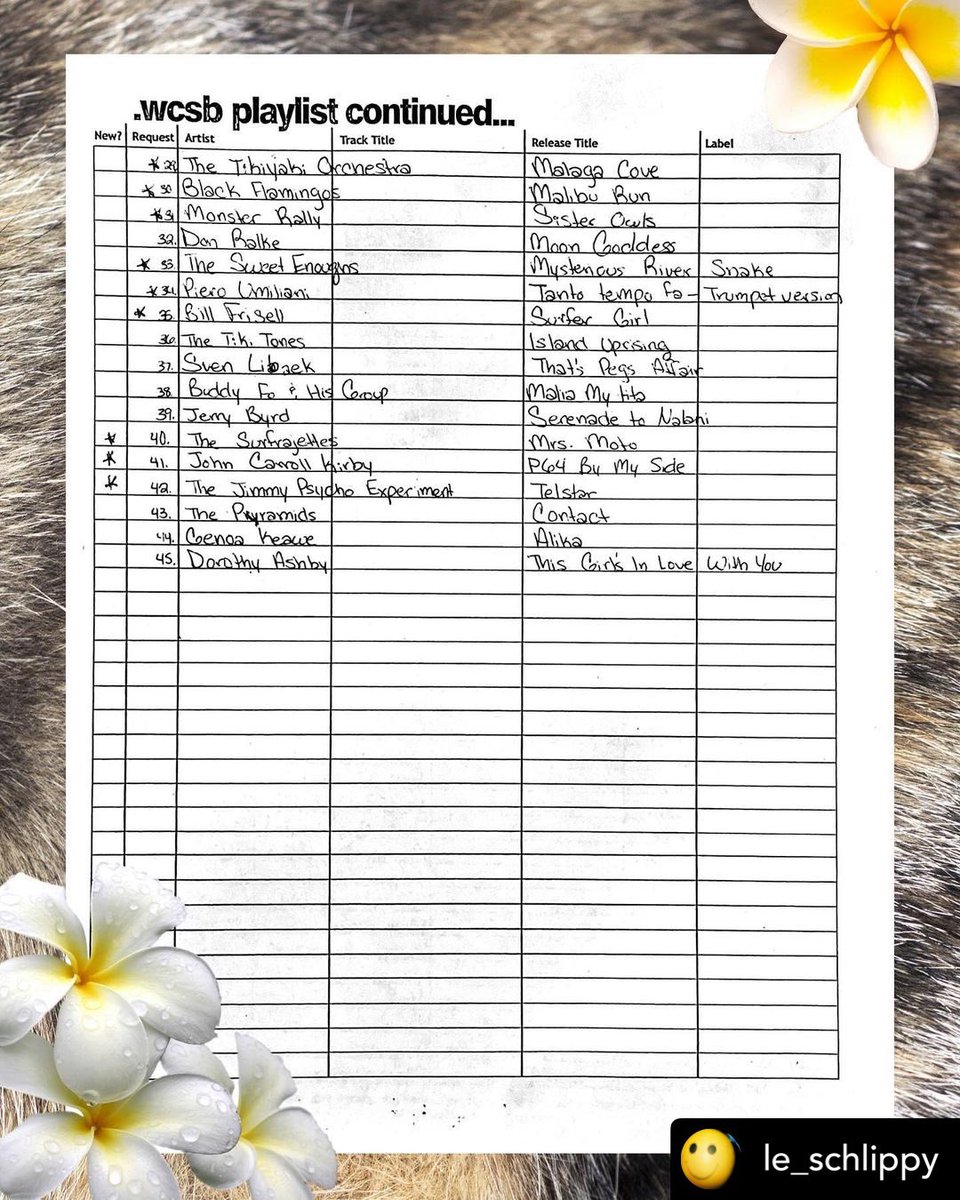 .wcsb playlist continued...
New? Request Artist Track Title Release Title Label
* 29. The Tikiyaki Orchestra Malaga Cove
* 30 Black Flamingos Malibu Run
* 31 Monster Rally Sister Owls
32. Don Ralke Moon Goddess
* 33 The Sweet Enoughs Mysterious River Snake
* 34. Piero Umiliani Tanto tempo fa - Trumpet version
* 35. Bill Frisell Surfer Girl
36. The Tiki Tones Island Uprising
37. Sven Libaek That's Pegs Affair
38. Buddy Fo & His Group Malia My tita
39. Jerry Byrd Serenade to Nalani
* 40. The Surfrajettes Mrs. Moto
* 41. John Carroll Kirby P64 By My Side
* 42. The Jimmy Psycho Experiment Telstar
43. The Pyramids Contact
44. Genoa Keawe Alika
45. Dorothy Ashby This Girl's In Love With You
le_schlippy